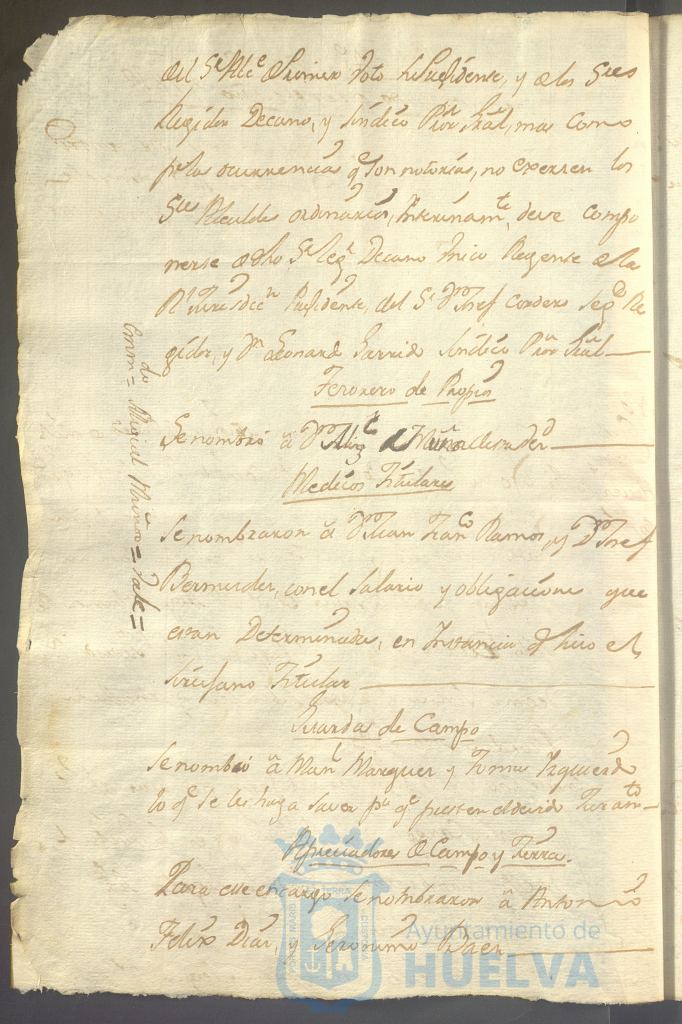 del Sr Alce de Primer Voto he Presidente, y de los Sres
Regidor Decano, y Sindico Pror Gral, mas como
pr las ocurrencias qe son notorias, no exersen los
Sres Alcaldes ordinarios, Interinamte, deve compo
nerse de dho Sr Regr Decano Unico Regente de la
Rl Jurisdicn Presidente, del Sr Dn Josef Cordero Segdo Re
gidor, y Dn Leonardo Garrido Sindico Pror Gral
Tesorero de Propios
Se nombró â Dn Migl Muñoz
Medicos Titulares
Se nombraron â Dn Juan Franco Ramos, y Dn Josef
Bermudez, con el Salario y obligaciones que
estan Determinadas, en Instancia qe hiso el
Sirujano Titular
Guardas de Campo
Se nombró â Manl Marquez y Tomas Izquierdo
lo qe se les haga saver pa qe presten el devido Juramto
Apreciadores de Campo y Tierra.
Para este encargo se nombraron â Antonio
Felix Diaz, y Geronimo Baez
Enmdo = Miguel Muñoz = Vale =
Ayuntamiento de
HUELVA